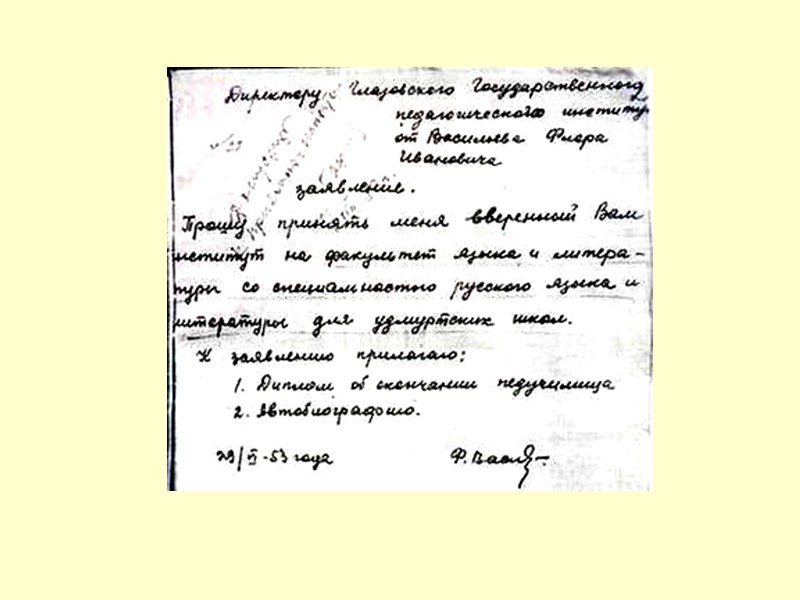 Директору Глазовского Государственного
педагогического институ
от Васильева Флора
Ивановича
заявление.
Прошу принять меня вверенный Вам
нститут на факультет языка и литера-
туры со специальностю русского языка и
итературы для удмуртских школ.
К заявлению прилагаю:
1. Диплом об окончании педучилища
2. Автобиографию.
29/VI-53 года
Ф. Васи